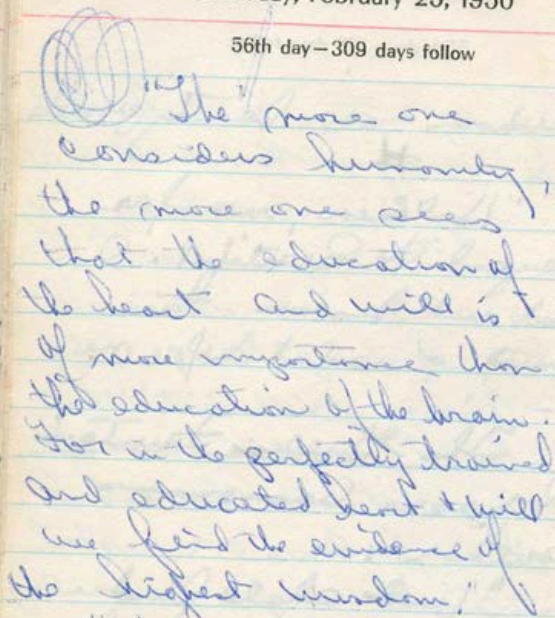 February 25, 1950
56th day—309 days follow
"The more one
considers humanity,
the more one sees
that the education of
the heart and will is
of more importance than
the education of the brain.
For in the perfectly trained
and educated heart + will
we find the evidence of
the highest wisdom."